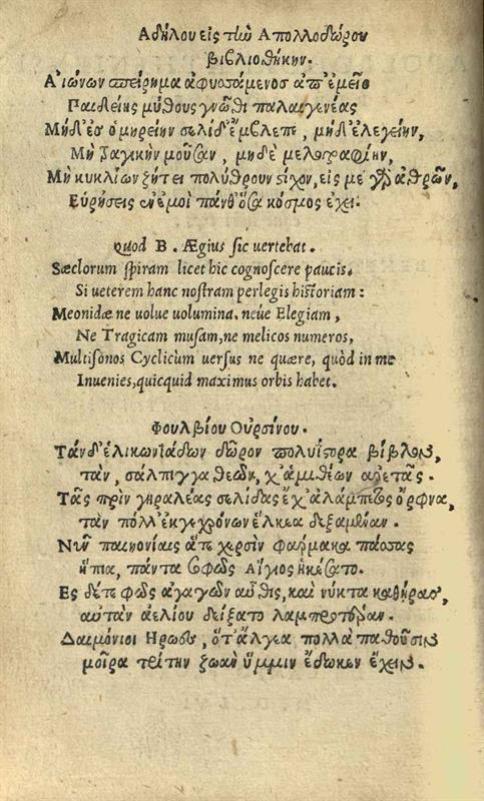 Αδήλου εἰς τὴν Απολλοδώρου
βιβλιοθήκην.
Αἰώνων σπείρημα ἀφυσσάμενος ἀπ' ἐμεῖο
Παιδείης μύθους γνῶθι παλαιγενέας
Μήδ' ἐς ὁμηρείην σελίδ' ἔμβλεπε, μήδ' ἐλεγείην,
Μὴ τραγικὴν μοῦσαν, μηδὲ μελογραφίην,
Μὴ κυκλίων ζήτει πολύθρουν στίχον, εἰς με γὰρ ἀθρῶν,
Εὑρήσεις ἐν ἐμοὶ πάνθ' ὅσα κόσμος ἔχει.
Quod B. Ægius sic vertebat.
Sæclorum spiram licet hic cognoscere paucis,
Si veterem hanc nostram perlegis historiam:
Meonidæ ne volue volumina, neúe Elegiam,
Ne Tragicam musam, ne melicos numeros,
Multisonos Cyclicùm versus ne quære, quòd in me
Inuenies, quicquid maximus orbis habet.
Φουλβίου Ουρσίνου.
Τάνδ' ἑλικωνιάδων δῶρον πολυΐστορα βίβλον,
τὰν, σάλπιγγα θεῶν, χ' ἁμιθέων ἀρετᾶς.
Τᾶς πρὶν γηραλέας σελίδας ἔχ' ἀλάμπετος ὄρφνα,
τὰν πόλλ' ἐκγεχρόνων ἕλκεα δεξαμέναν.
Νῦν παιηονίαις ἅτε χερσὶν φάρμακα πάσσας
ἤπια, πάντα σοφῶς Αἴγιος ἠκέσατο.
Ες δέ τε φῶς ἀγαγὼν αὖθις, καὶ νύκτα καθήρας,
αὐτὰν ἀελίου δείξατο λαμπροτέραν.
Δαιμόνιοι Ηρωες, ὅτ' ἄλγεα πολλὰ παθοῦσιν
μοῖρα τρίτην ζωὰν ὔμμιν ἔδωκεν ἔχειν.